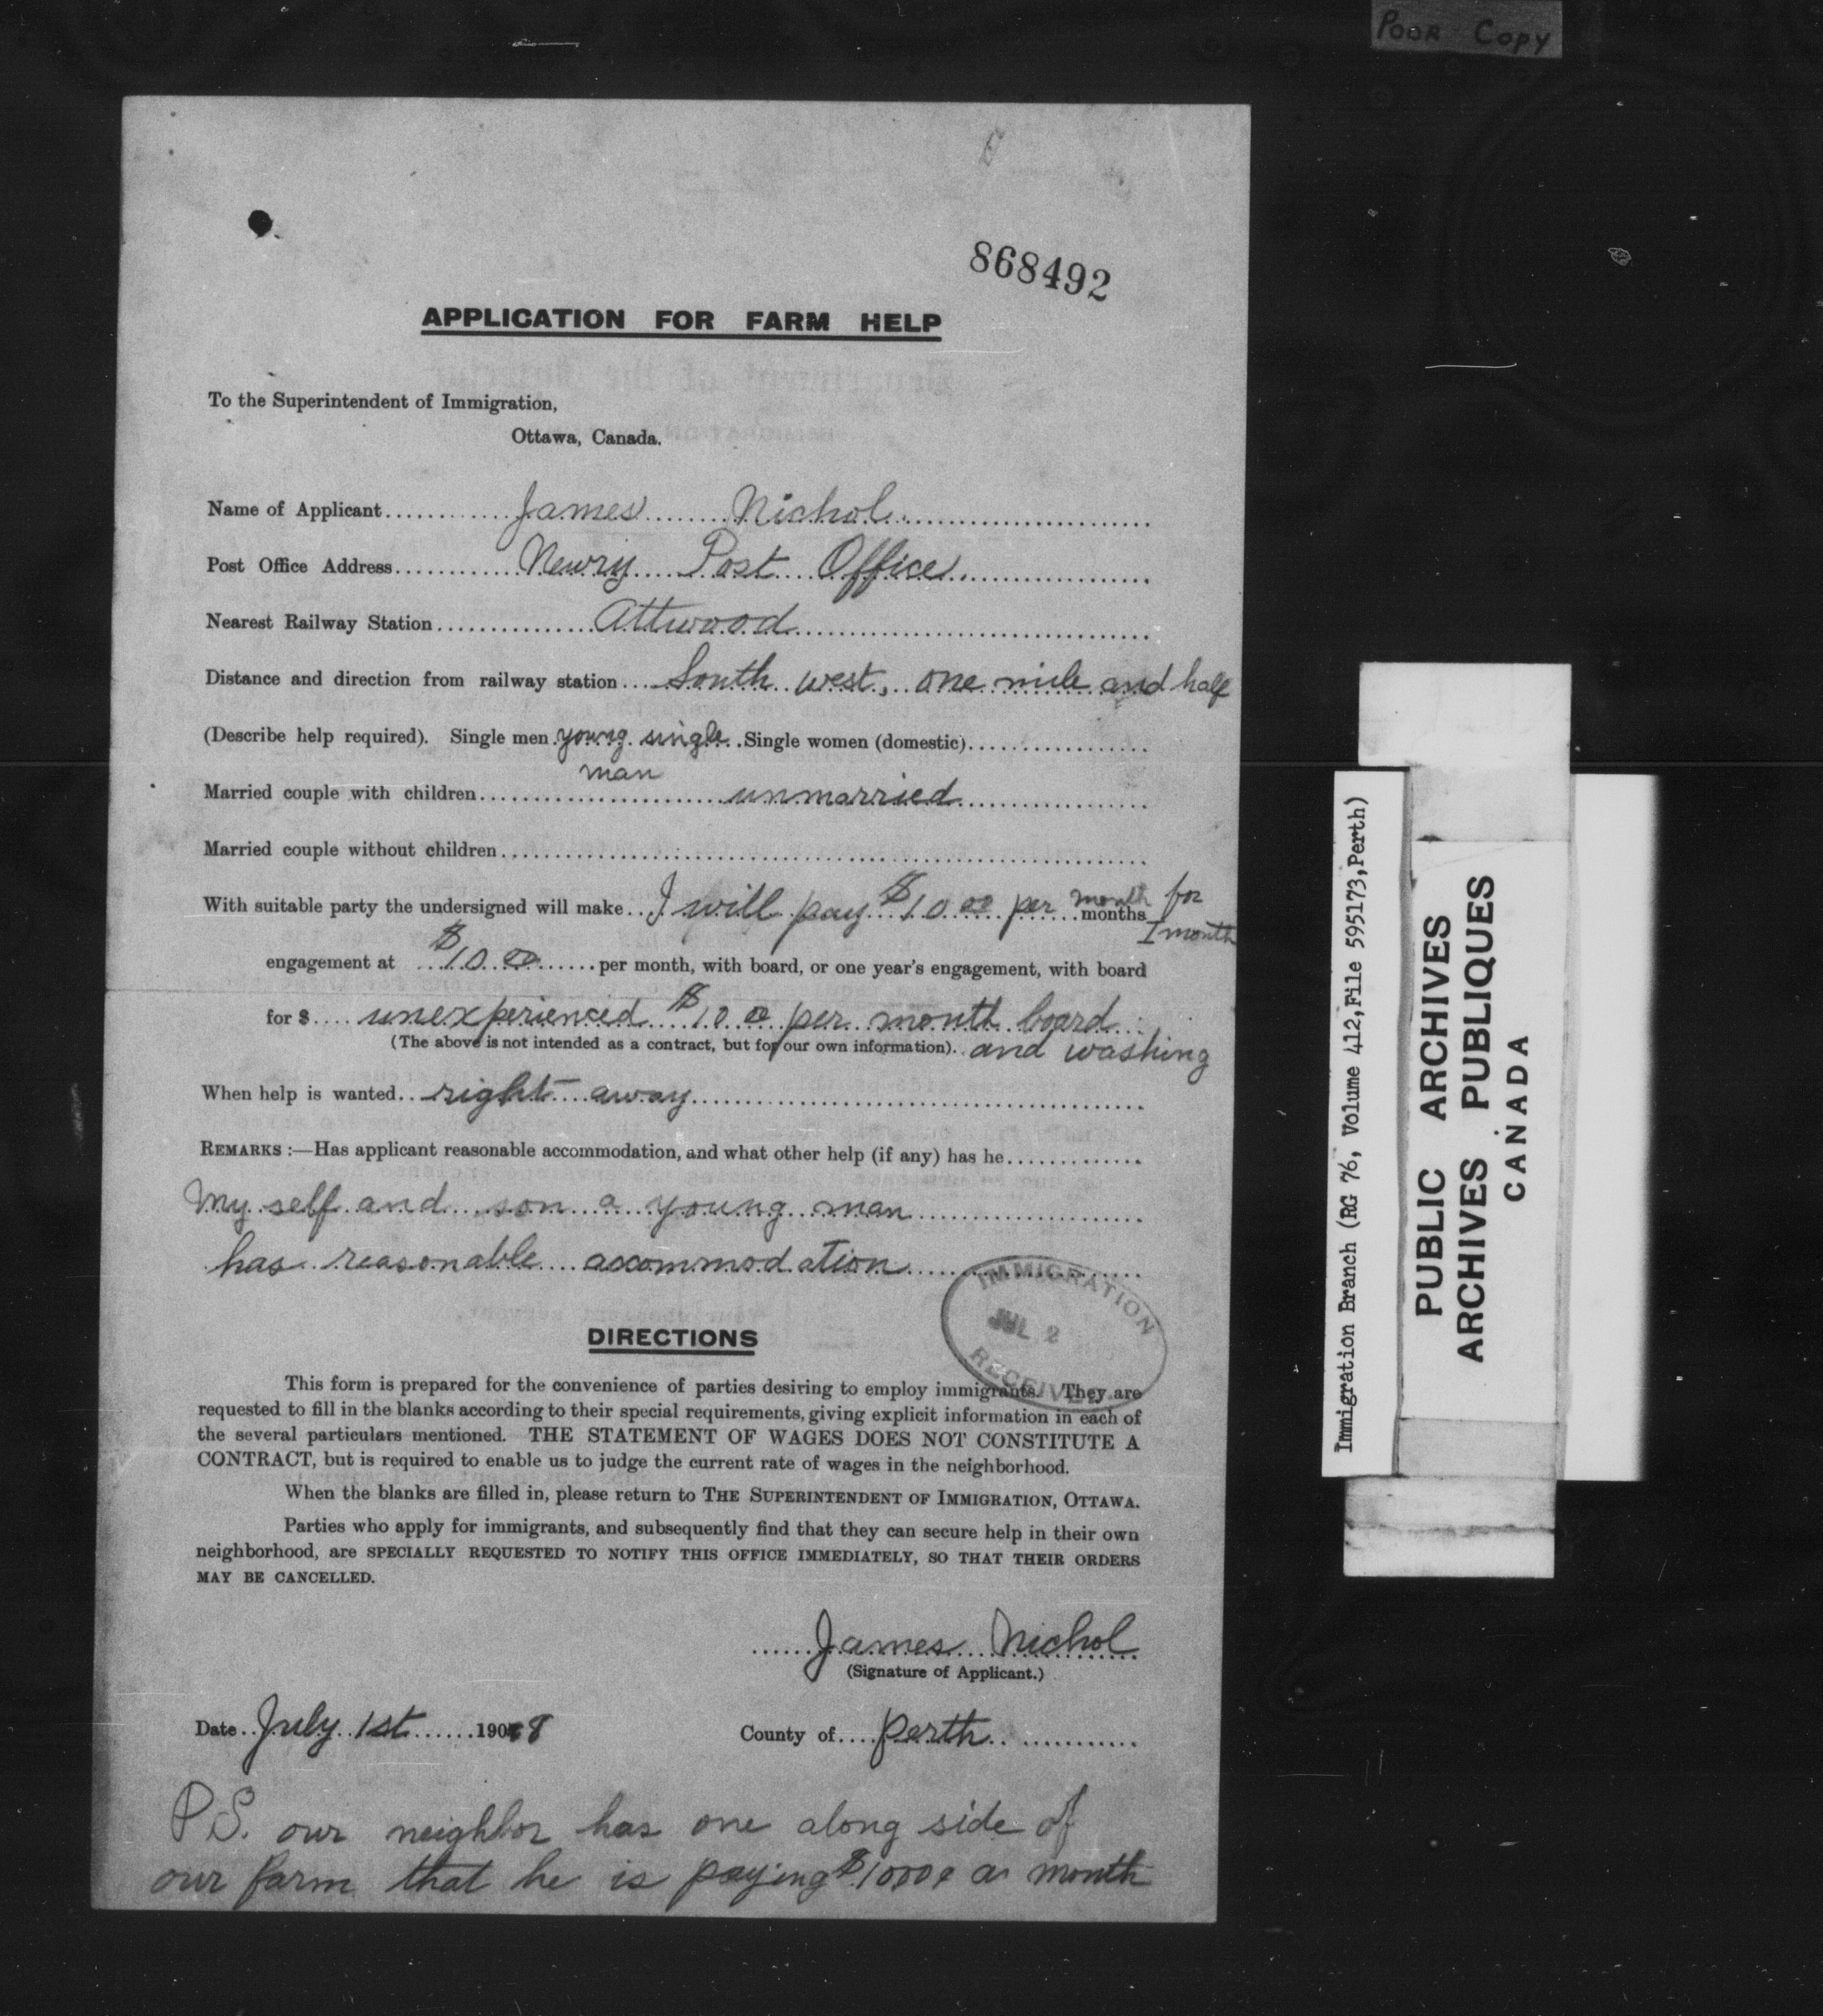 POOR COPY
868492
APPLICATION FOR FARM HELP
To the Superintendent of Immigration,
Ottawa, Canada.
Name of Applicant James Nichol
Post Office Address Newry Post Office
Nearest Railway Station Attwood
Distance and direction from railway station South west, one mile and half
(Describe help required). Single men young single Single women (domestic)
man
Married couple with children unmarried
Married couple without children
With suitable party the undersigned will make I will pay $10.00 per month months for
1 month
engagement at $10.00 per month, with board, or one year's engagement, with board
for $ unexperienced $10.00 per month board
(The above is not intended as a contract, but for our own information). and washing
When help is wanted right away
REMARKS :—Has applicant reasonable accommodation, and what other help (if any) has he
My self and son a young man
has reasonable accommodation
IMMIGRATION
JUL 2
RECEIVED
DIRECTIONS
This form is prepared for the convenience of parties desiring to employ immigrants. They are
requested to fill in the blanks according to their special requirements, giving explicit information in each of
the several particulars mentioned. THE STATEMENT OF WAGES DOES NOT CONSTITUTE A
CONTRACT, but is required to enable us to judge the current rate of wages in the neighborhood.
When the blanks are filled in, please return to THE SUPERINTENDENT OF IMMIGRATION, OTTAWA.
Parties who apply for immigrants, and subsequently find that they can secure help in their own
neighborhood, are SPECIALLY REQUESTED TO NOTIFY THIS OFFICE IMMEDIATELY, SO THAT THEIR ORDERS
MAY BE CANCELLED.
James Nichol
(Signature of Applicant.)
Date July 1st 1908 County of Perth
P.S. our neighbor has one along side of
our farm that he is paying $10.00 a month
Immigration Branch (RG 76, Volume 412, File 595173, Perth)
PUBLIC ARCHIVES
ARCHIVES PUBLIQUES
CANADA